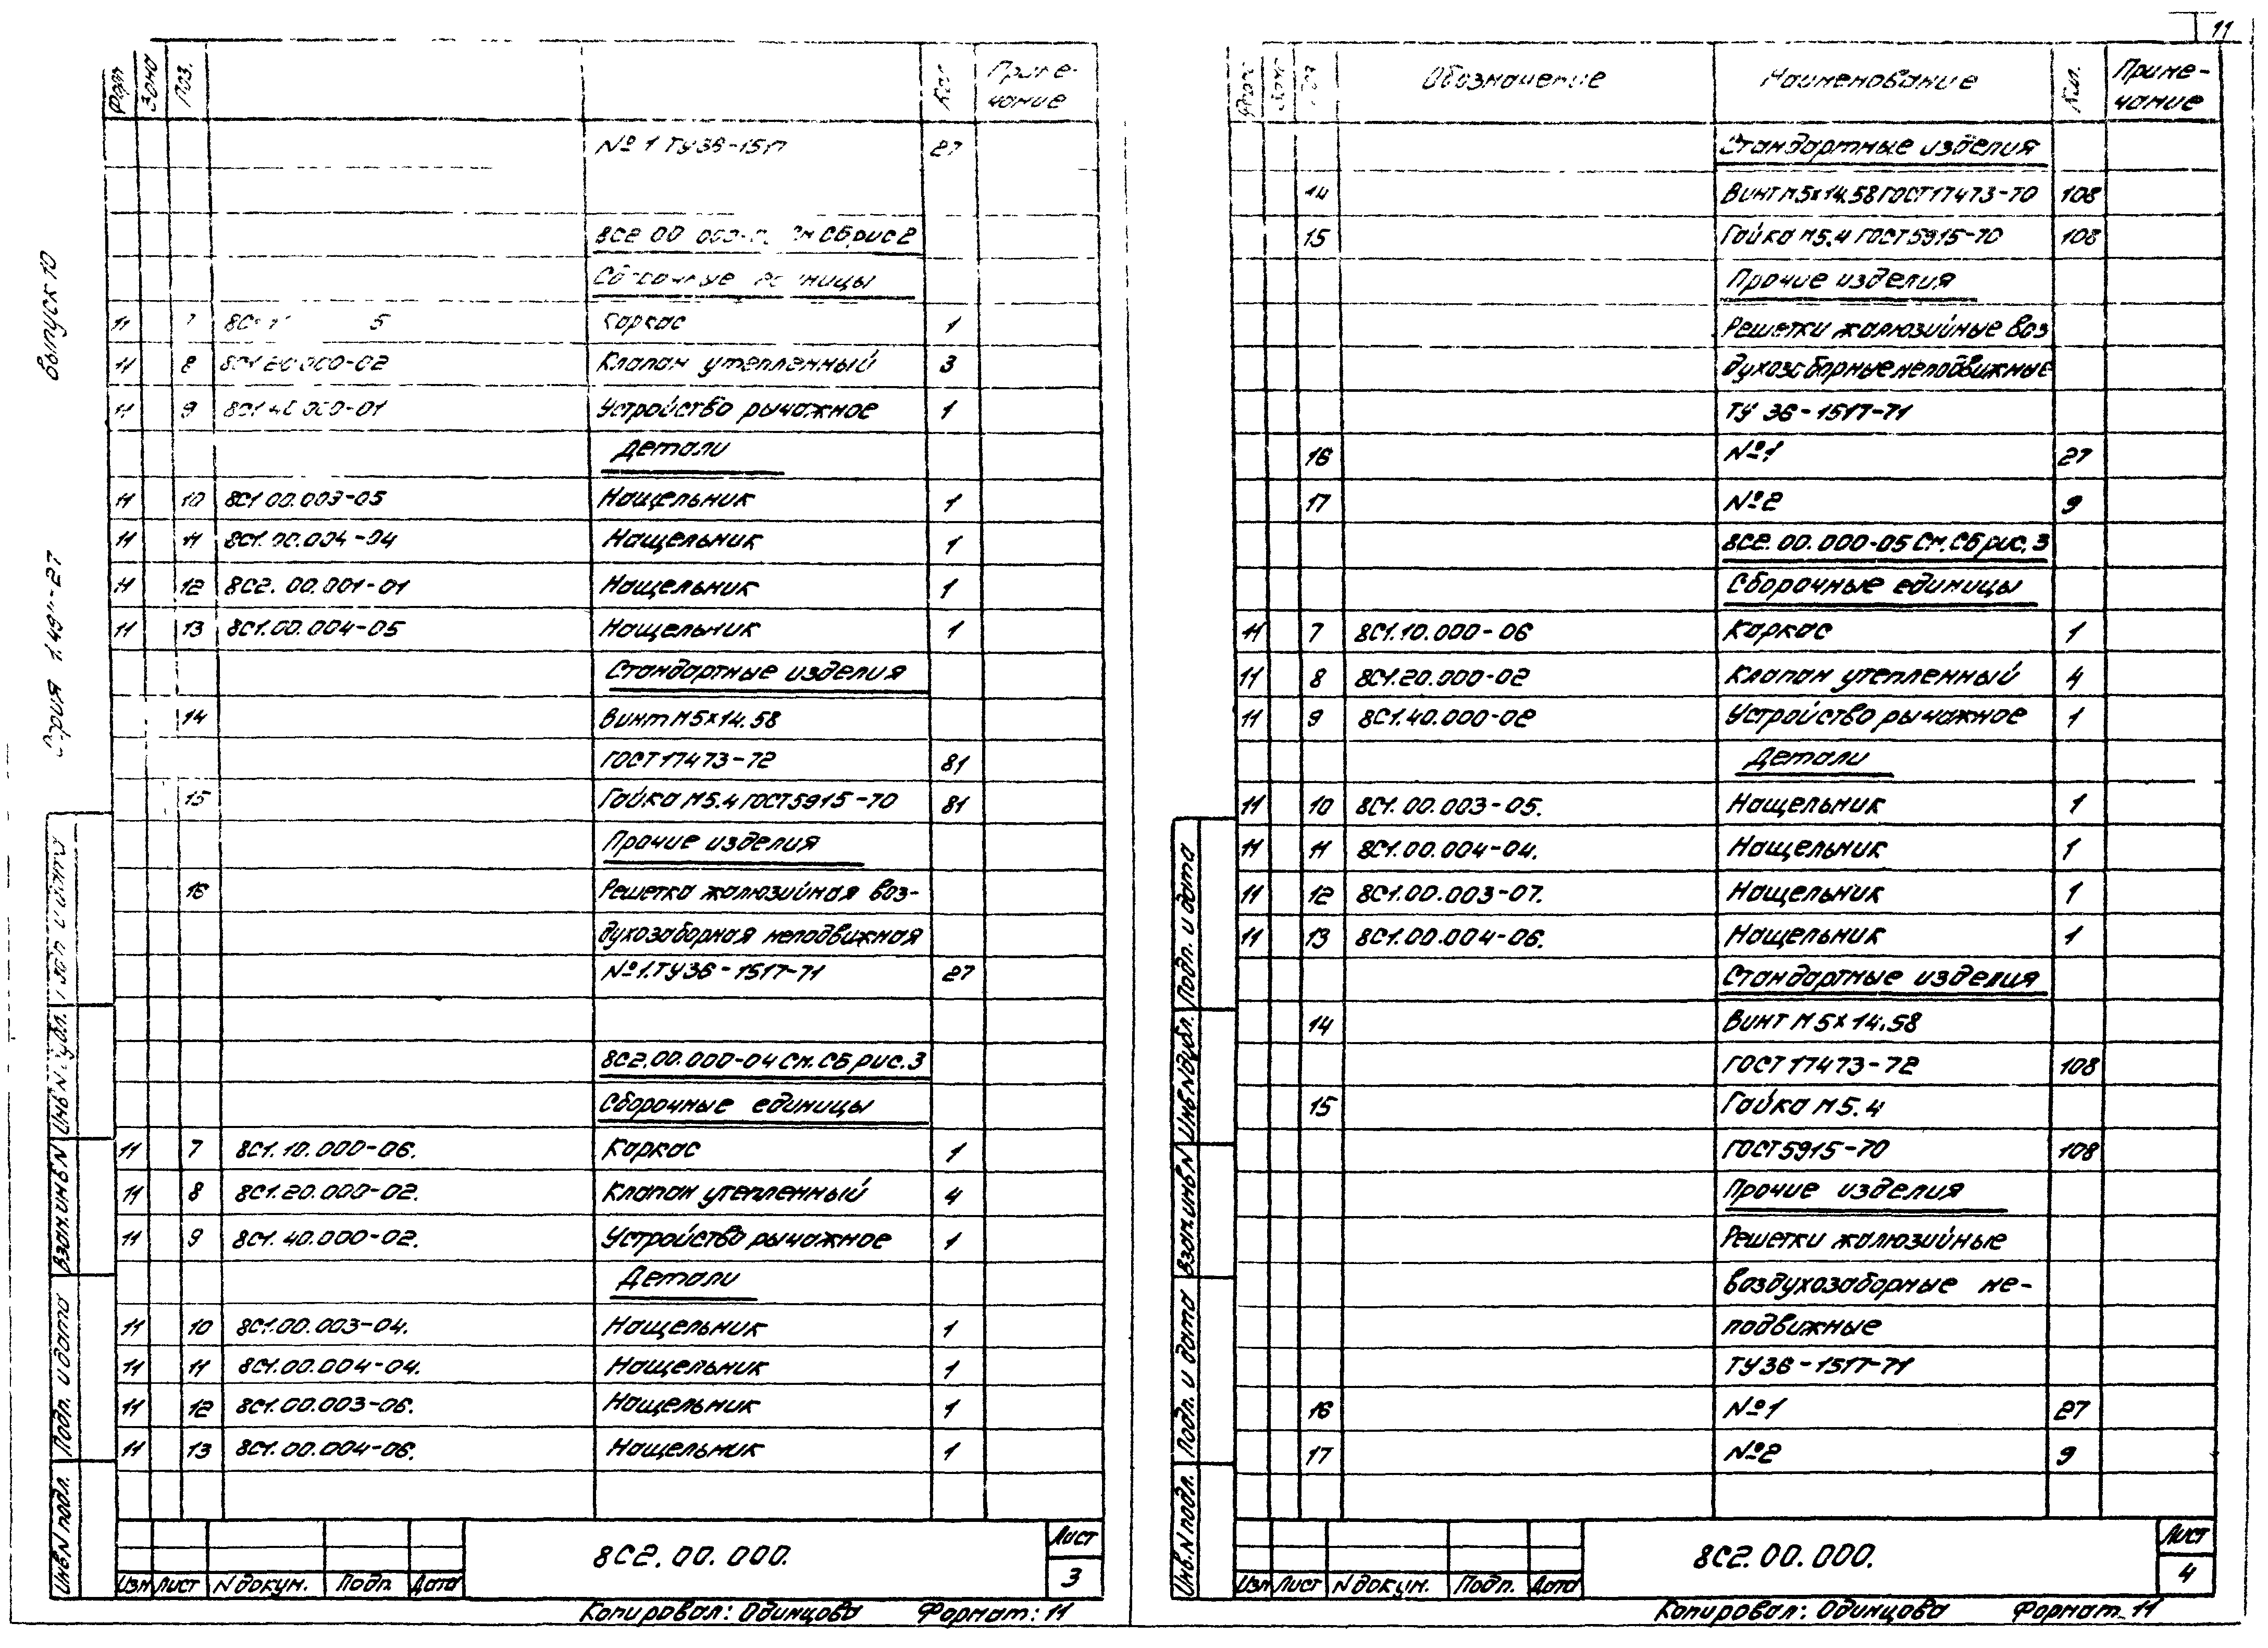 11
Выпуск 10
Серия 1.49 -27
Зона Поз. Кол Приме-
чание
№ 1 ТУ36-151 27
8С2 00 См СБ рис 2
11 Каркас 1
11 8 8С1 20.000-02 Клапан утепленный 3
11 9 8С1 40 000-01 Устройство рычажное 1
Детали
11 10 8С1 00.003-05 Нащельник 1
11 11 8С1.00.004-04 Нащельник 1
11 12 8С2.00.001-01 Нащельник 1
11 13 8С1.00.004-05 Нащельник 1
Стандартные изделия
14 Винт М5х14.58
ГОСТ 17473-72 81
15 Гайка М5.4 ГОСТ 5915-70 81
Прочие изделия
16 Решетка жалюзийная воз-
духозаборная неподвижная
№1.ТУ36-1517-71 27
8С2.00.000-04 См.СБ рис.3
Сборочные единицы
11 7 8С1.10.000-06. Каркас 1
11 8 8С1.20.000-02. Клапан утепленный 4
11 9 8С1.40.000-02. Устройство рычажное 1
Детали
11 10 8С1.00.003-04. Нащельник 1
11 11 8С1.00.004-04. Нащельник 1
11 12 8С1.00.003-06. Нащельник 1
11 13 8С1.00.004-06. Нащельник 1
8С2.00.000.
Лист
3
Изм Лист N докум. Подп. Дата
Копировал: Одинцова Формат: 11
Инв.N подл. Подп. и дата Взам.инв.N Инв.N дубл. Подп. и дата
Обозначение Наименование Кол. Приме-
чание
Стандартные изделия
14 Винт М5х14.58 ГОСТ 17473-70 108
15 Гайка М5.4 ГОСТ 5915-70 108
Прочие изделия
Решетки жалюзийные воз
духозаборные неподвижные
ТУ 36-1517-71
16 №1 27
17 №2 9
8С2.00.000-05 См.СБ рис.3
Сборочные единицы
11 7 8С1.10.000-06 Каркас 1
11 8 8С1.20.000-02 Клапан утепленный 4
11 9 8С1.40.000-02 Устройство рычажное 1
Детали
11 10 8С1.00.003-05. Нащельник 1
11 11 8С1.00.004-04. Нащельник 1
11 12 8С1.00.003-07. Нащельник 1
11 13 8С1.00.004-06. Нащельник 1
Стандартные изделия
14 Винт М5х14.58
ГОСТ 17473-72 108
15 Гайка М5.4
ГОСТ 5915-70 108
Прочие изделия
Решетки жалюзийные
воздухозаборные не-
подвижные
ТУ36-1517-71
16 №1 27
17 №2 9
8С2.00.000.
Лист
4
Изм Лист N докум. Подп. Дата
Копировал: Одинцова Формат 11
Инв.N подл. Подп. и дата Взам.инв.N Инв.N дубл. Подп. и дата